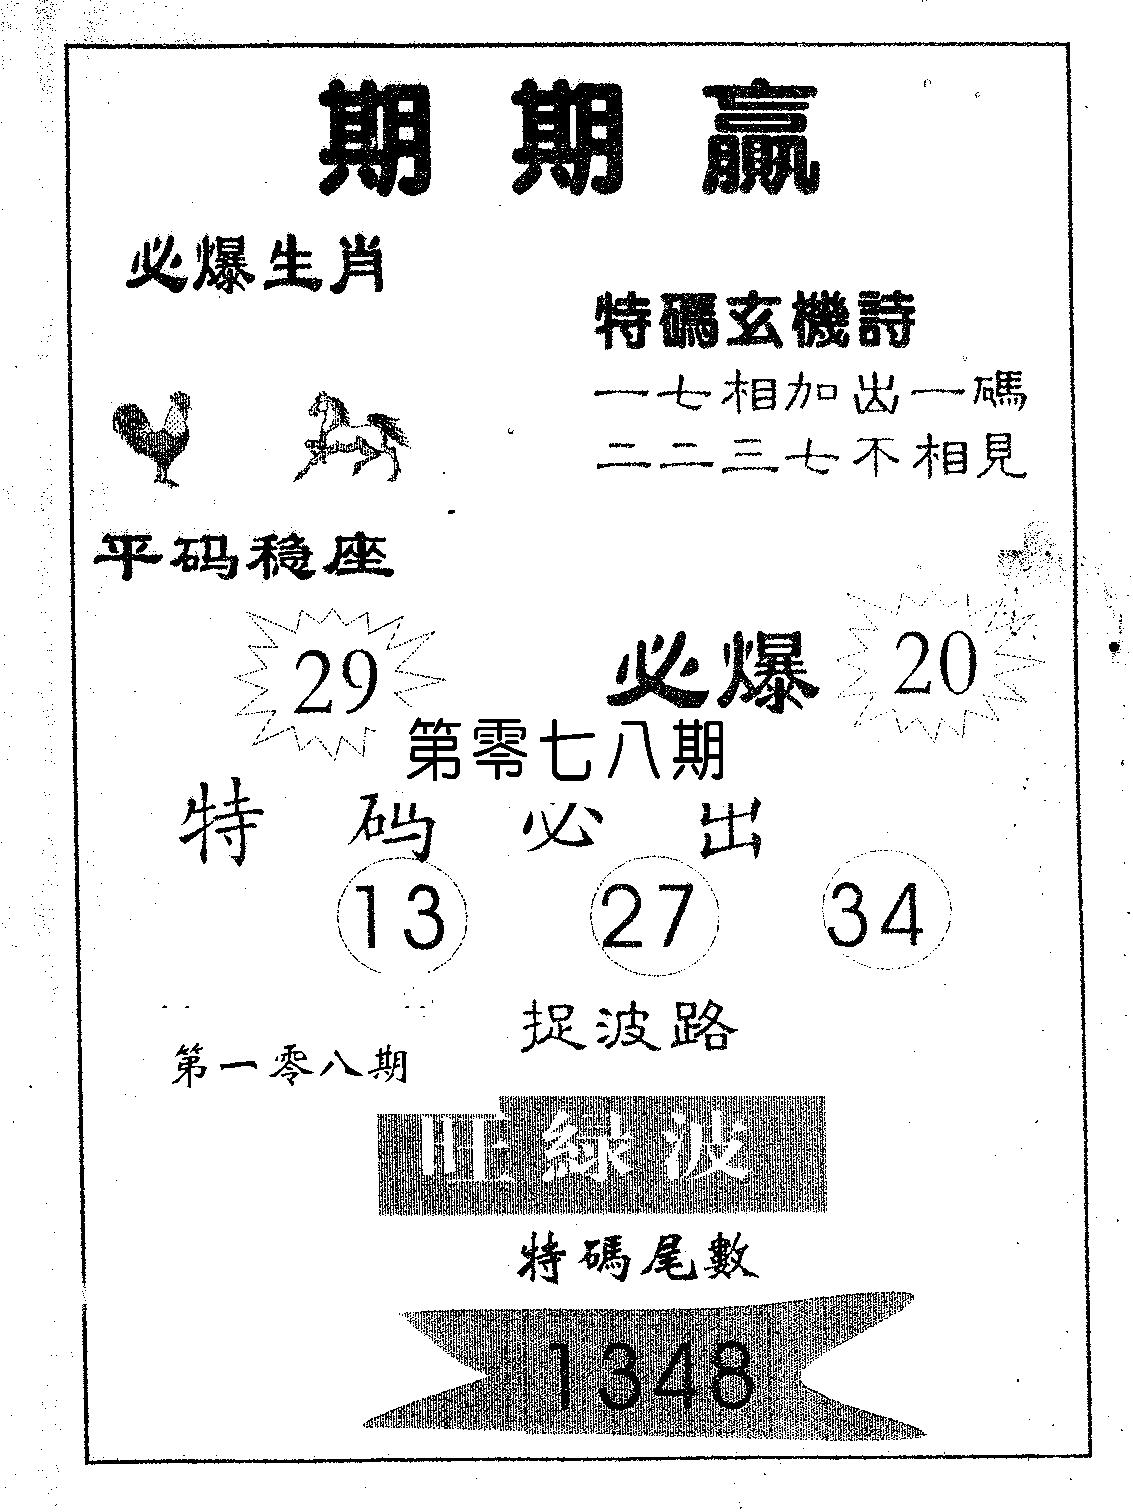 期期贏
必爆生肖
特碼玄機詩
一七相加出一碼
二二三七不相見
平码稳座
29
必爆 20
第零七八期
特码必出
13 27 34
捉波路
第一零八期
旺綠波
特碼尾數
1348